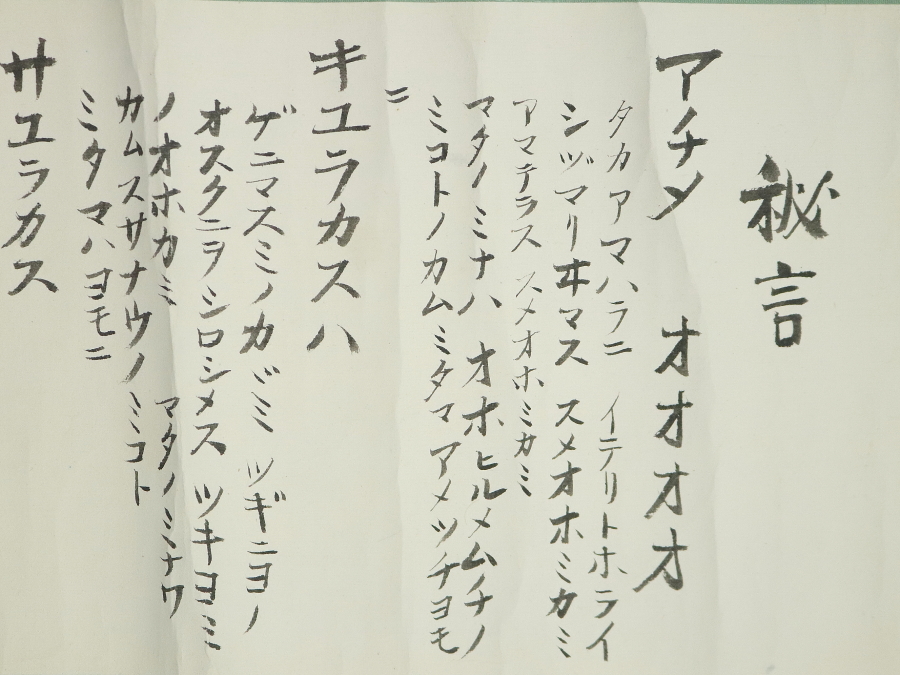 秘言
アチメ オオオオ
タカアマハラニ イテリトホライ
シヅマリヰマス スメオホミカミ
アマテラス スメオホミカミ
マタノミナハ オホヒルメムチノ
ミコトノカムミタマ アメツチヨモ
ニ
キユラカスハ
ゲニマスミノカヾミ ツギニヨノ
オスクニヲシロシメス ツキヨミ
ノオホカミ マタノミナワ
カムスサナウノミコト
ミタマハヨモニ
サユラカス